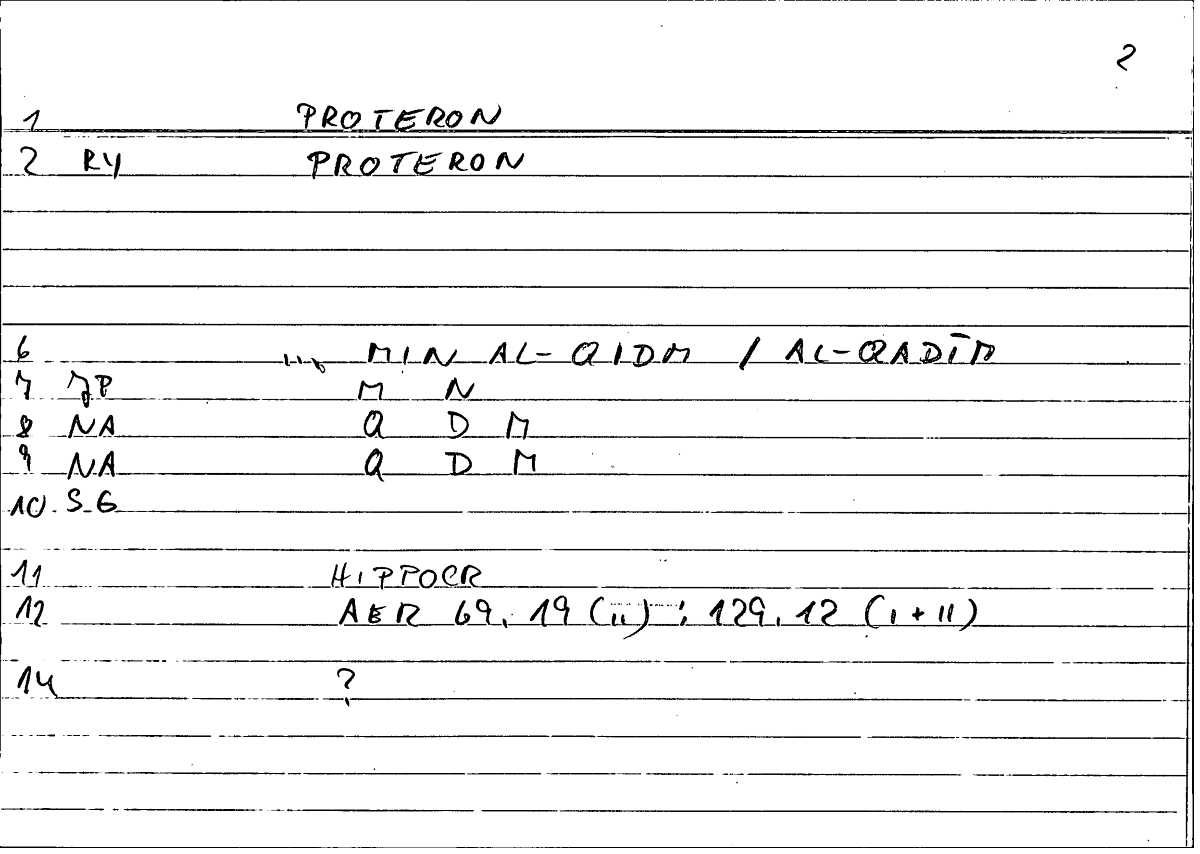 2
1 PROTERON
2 RY PROTERON
6 ... MIN AL-QIDM / AL-QADĪM
7 JP M N
8 NA Q D M
9 NA Q D M
10 SG
11 HIPPOCR
12 AER 69.19 (II) ; 129.12 (I + II)
14 ?